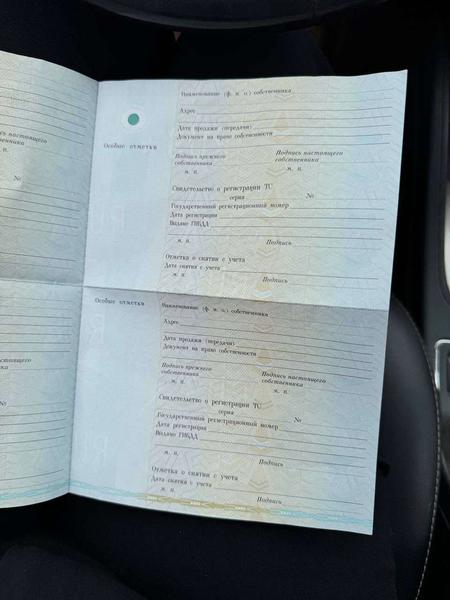 ь настоящего
а
м. п.
№
Особые отметки
Наименование (ф. и. о.) собственника
Адрес
Дата продажи (передачи)
Документ на право собственности
Подпись прежнего собственника
Подпись настоящего собственника
м. п.
м. п.
Свидетельство о регистрации ТС
серия № 
Государственный регистрационный номер
Дата регистрации
Выдано ГИБДД
м. п.
Подпись
Отметка о снятии с учета
Дата снятия с учета
м. п.
Подпись
настоящего
п.
№
Особые отметки
Наименование (ф. и. о.) собственника
Адрес
Дата продажи (передачи)
Документ на право собственности
Подпись прежнего собственника
Подпись настоящего собственника
м. п.
м. п.
Свидетельство о регистрации ТС
серия №
Государственный регистрационный номер
Дата регистрации
Выдано ГИБДД
м. п.
Подпись
Отметка о снятии с учета
Дата снятия с учета
м. п.
Подпись